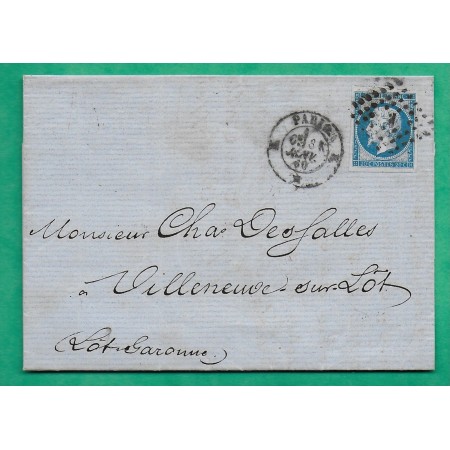 PARIS
JANV.
60
Monsieur Chas DesSalles
à Villeneuve-sur-Lôt
Lôt-Garonne.